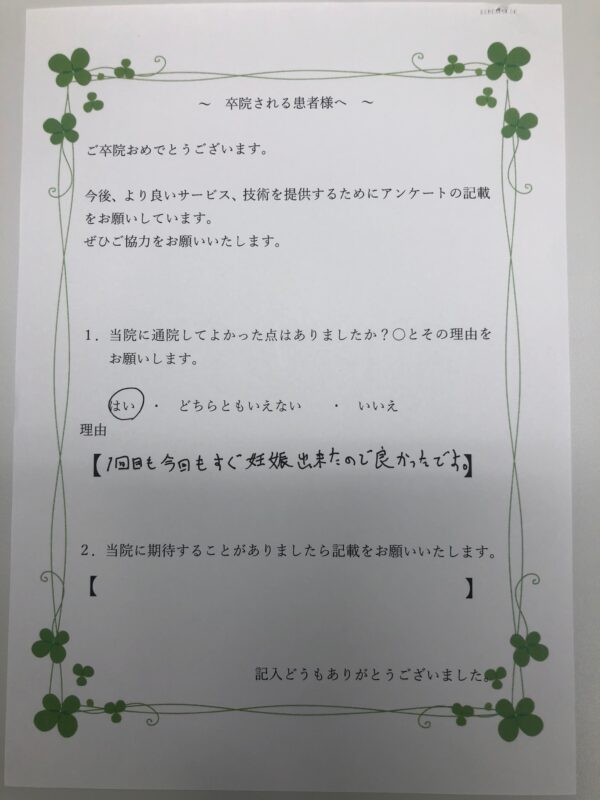 ～ 卒院される患者様へ ～
ご卒院おめでとうございます。
今後、より良いサービス、技術を提供するためにアンケートの記載
をお願いしています。
ぜひご協力をお願いいたします。
1．当院に通院してよかった点はありましたか？〇とその理由を
お願いします。
はい ・ どちらともいえない ・ いいえ
理由
【1回目も今回もすぐ妊娠出来たので良かったです。】
2．当院に期待することがありましたら記載をお願いいたします。
【 】
記入どうもありがとうございました。